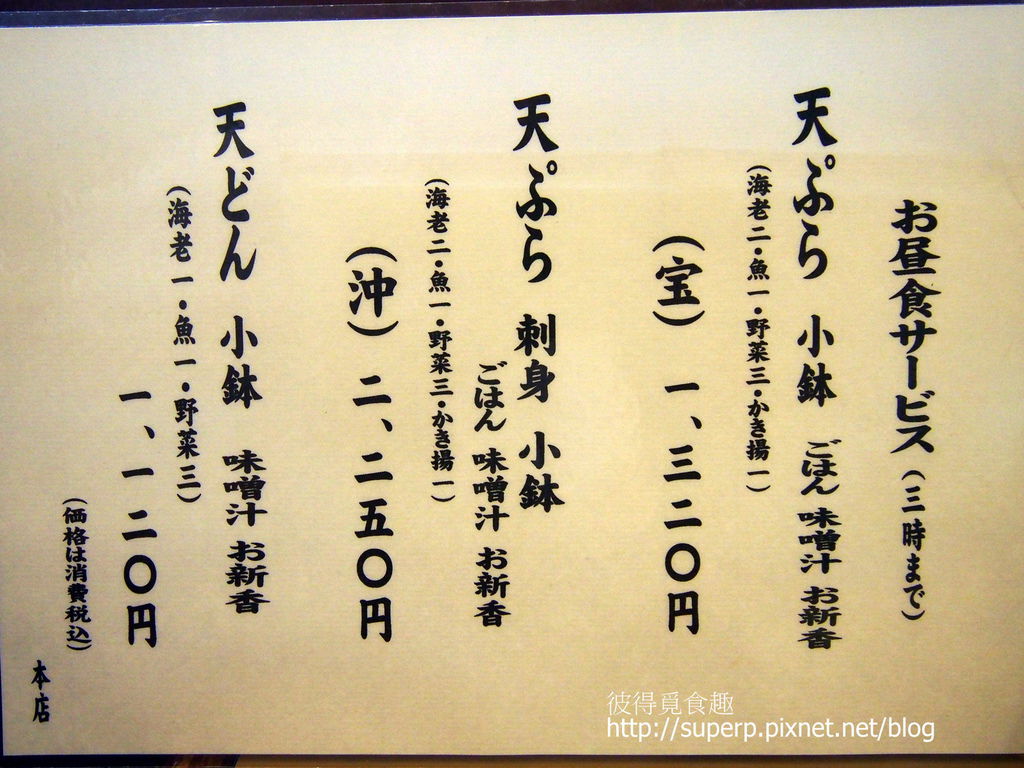 お昼食サービス(三時まで)
天ぷら 小鉢 ごはん 味噌汁 お新香
(海老二・魚一・野菜三・かき揚一)
(宝) 一、三二〇円
天ぷら 刺身 小鉢
ごはん 味噌汁 お新香
(海老二・魚一・野菜三・かき揚一)
(沖) 二、二五〇円
天どん 小鉢 味噌汁 お新香
(海老一・魚一・野菜三)
一、一二〇円
(価格は消費税込)
本店
彼得覓食趣
http://superp.pixnet.net/blog